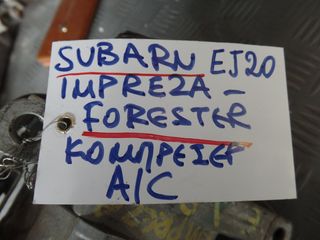 SUBARN EJ20
IMPREZA -
FORESTER
ΚΟΜΠΡΕΣΕΡ
A/C